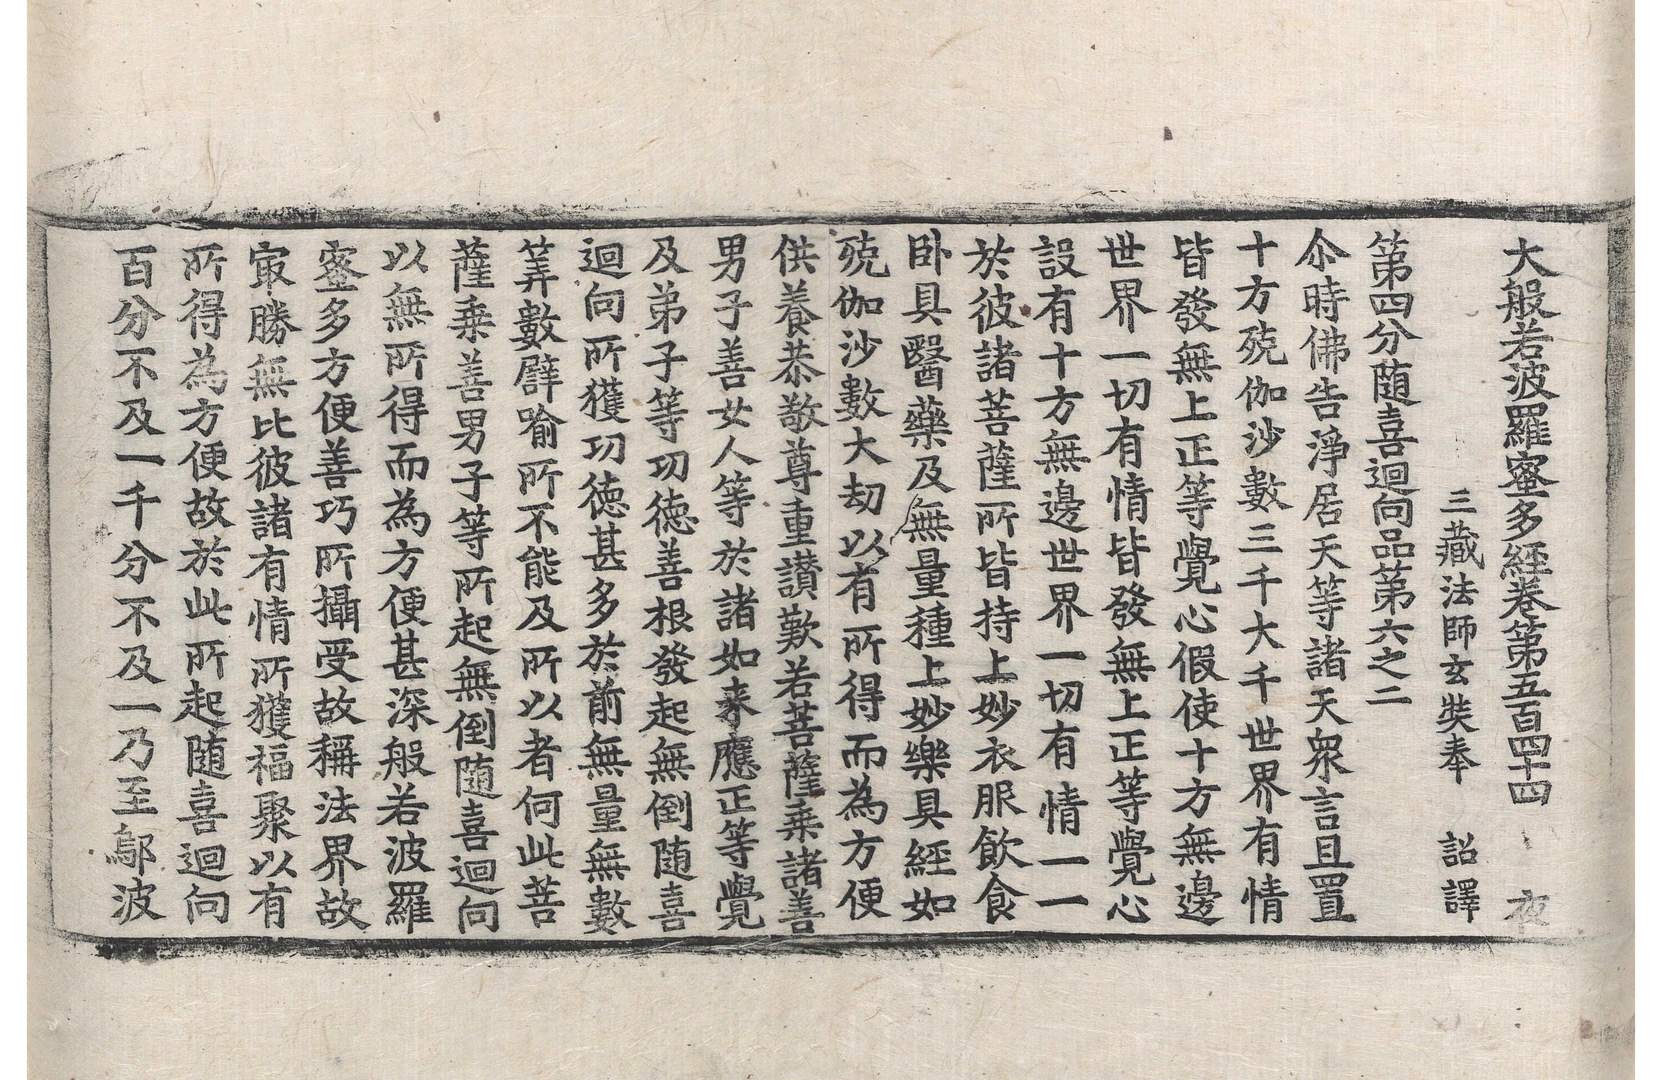 大般若波羅蜜多經卷第五百四十四 夜
三藏法師玄奘奉 詔譯
第四分隨喜迴向品第六之二
尒時佛告淨居天等諸天衆言且置
十方殑伽沙數三千大千世界有情
皆發無上正等覺心假使十方無邊
世界一切有情皆發無上正等覺心
設有十方無邊世界一切有情一一
於彼諸菩薩所皆持上妙衣服飲食
卧具醫藥及無量種上妙樂具經如
殑伽沙數大劫以有所得而為方便
供養恭敬尊重讃歎若菩薩乗諸善
男子善女人等於諸如来應正等覺
及弟子等功德善根發起無倒随喜
迴向所獲功德甚多於前無量無數
筭數譬喻所不能及所以者何此菩
薩乗善男子等所起無倒随喜迴向
以無所得而為方便甚深般若波羅
蜜多方便善巧所攝受故稱法界故
㝡勝無比彼諸有情所獲福聚以有
所得為方便故於此所起随喜迴向
百分不及一千分不及一乃至鄔波